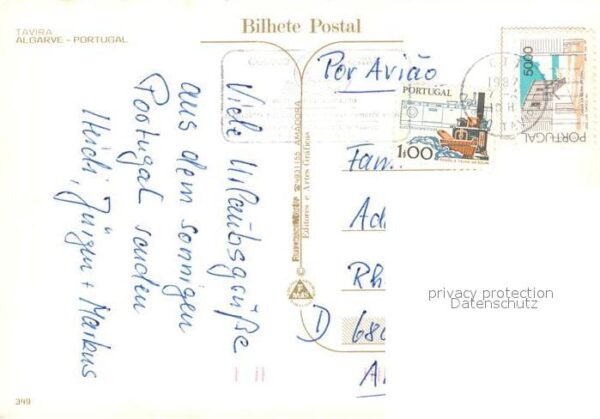 TAVIRA
ALGARVE - PORTUGAL
Bilhete Postal
Viele Urlaubsgrüße
aus dem sonnigen
Portugal senden
Heidi, Jürgen + Markus
Editores e Artes Gráficas
AMADORA
Por Avião
PORTUGAL
1$00
5000
PORTUGAL
1987
Fam
Ad
Rh
D 680
A
privacy protection
Datenschutz
349